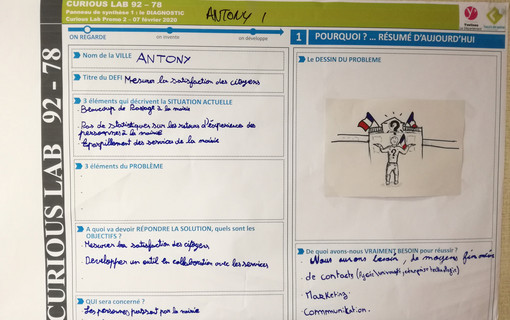 CURIOUS LAB 92 – 78
Panneau de synthèse 1 : le DIAGNOSTIC
Curious Lab Promo 2 – 07 février 2020
ANTONY 1
Yvelines
ON REGARDE
on invente
on développe
1 POURQUOI ? ... RÉSUMÉ D'AUJOURD'HUI
CURIOUS LAB 92 - 78
Nom de la VILLE ANTONY
Titre du DEFI Mesurer la satisfaction des citoyens
3 éléments qui décrivent la SITUATION ACTUELLE
Beaucoup de Passage à la mairie
Pas de statistiques sur les retours d'expériences des
personnes à la mairie
Eparpillement des services de la mairie
3 éléments du PROBLÈME
A quoi va devoir RÉPONDRE LA SOLUTION, quels sont les
OBJECTIFS ?
- Mesurer la satisfaction des citoyens
Developper un outil en collaboration avec les services
QUI sera concerné ?
Les personnes passant par la mairie
Le DESSIN DU PROBLEME
?
?
De quoi avons-nous VRAIMENT BESOIN pour réussir ?
Nous aurons besoin, de moyens financiers
. de contacts
. Marketing
. Communication.